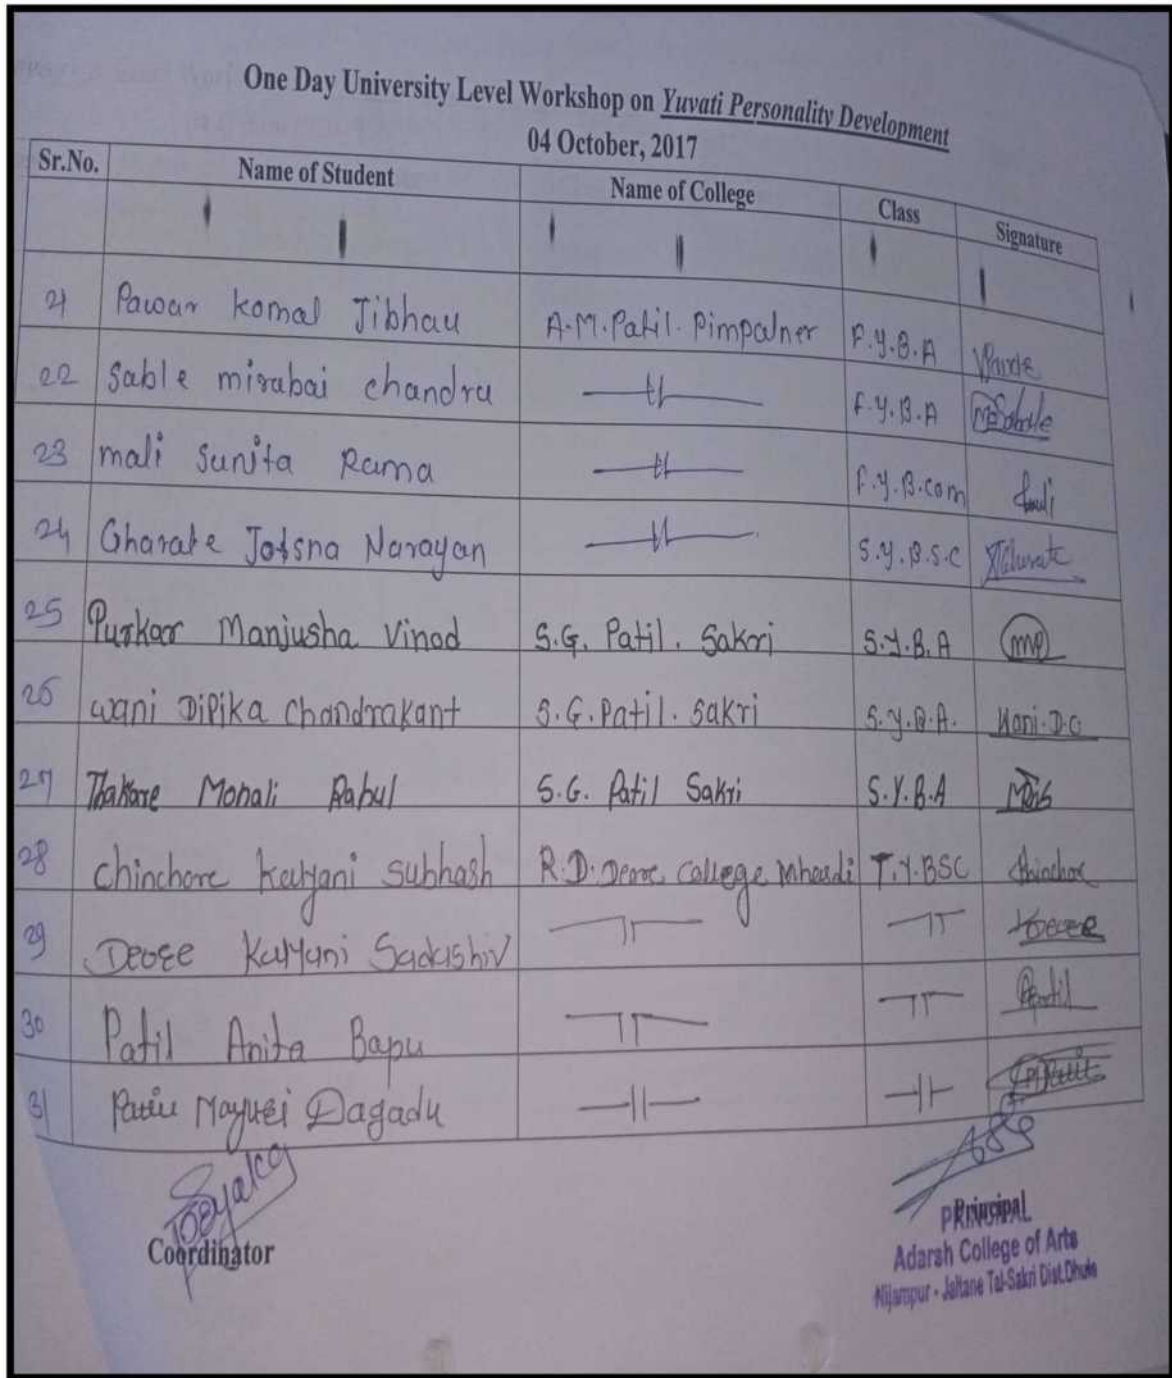 One Day University Level Workshop on Yuvati Personality Development
04 October, 2017
Sr.No. Name of Student Name of College Class Signature
21 Pawar komal Jibhau A.M.Patil. Pimpalner F.Y.B.A
22 Sable mirabai chandru —〃— F.Y.B.A
23 mali Sunita Rama —〃— F.Y.B.com
24 Gharate Jotsna Narayan —〃— S.Y.B.S.C
25 Purkar Manjusha Vinod S.G. Patil. Sakri S.Y.B.A
26 wani Dipika Chandrakant S.G.Patil. Sakri S.Y.B.A. Wani.D.C
27 Thakare Monali Rahul S.G. Patil Sakri S.Y.B.A
28 Chinchore kalyani Subhash R.D. Deore College Mhasdi T.Y.BSC Chinchore
29 Deore Kalyani Sadashiv —〃— —〃— Deore
30 Patil Anita Bapu —〃— —〃— Apatil
31 Patil Mayuri Dagadu —〃— —〃—
Coordinator
Principal
PRINCIPAL
Adarsh College of Arts
Nijampur - Jaitane Tal-Sakri Dist.Dhule